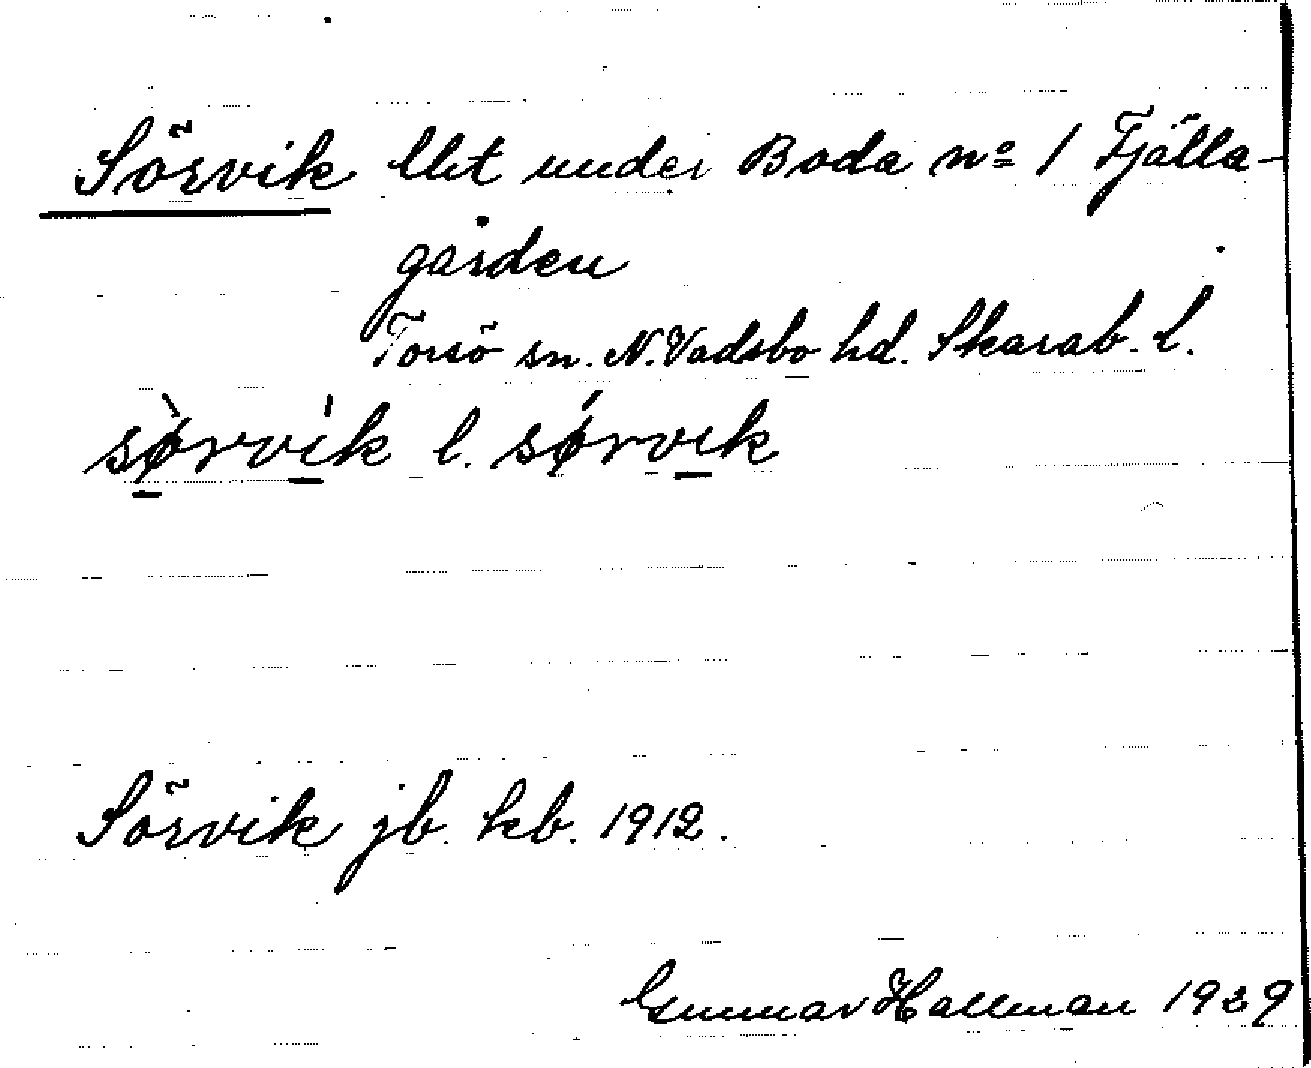 Sörvik lht under Boda nº 1 Fjälla-
gården
Torsö sn. N. Vadsbo hd. Skarab. L.
sø̀rvìk l. sǿrvik
Sörvik jb. kb. 1912.
Gunnar Hallman 1929